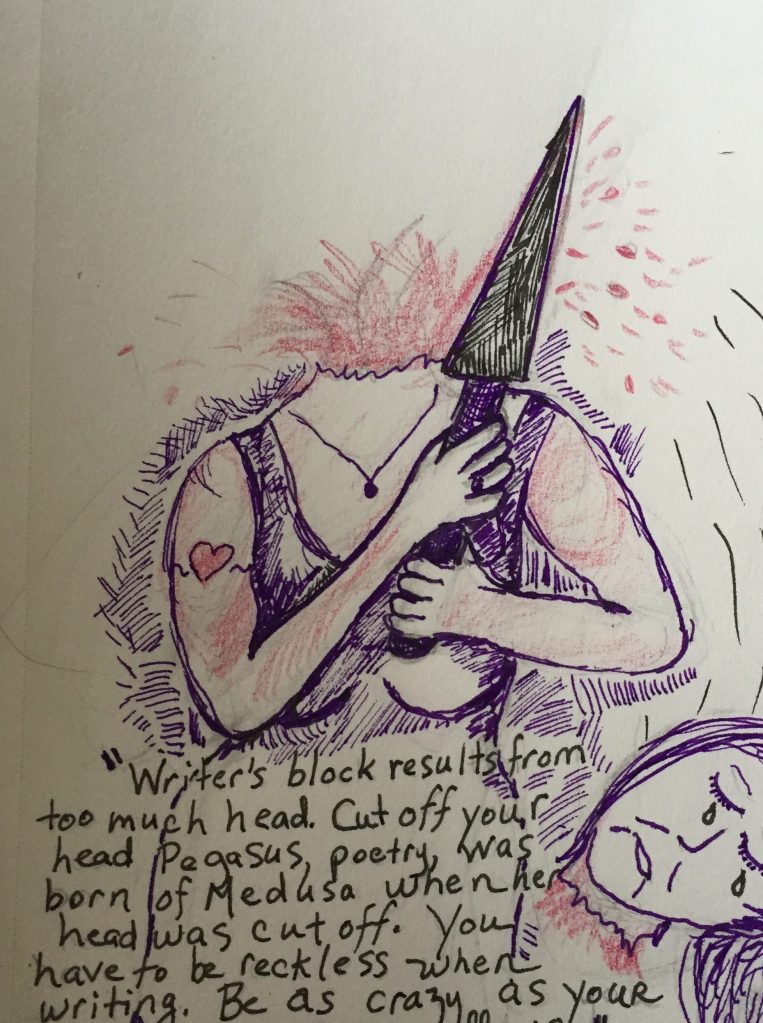 "Writer's block results from
too much head. Cut off your
head Pegasus, poetry, was
born of Medusa when her
head was cut off. You
have to be reckless when
writing. Be as crazy as your